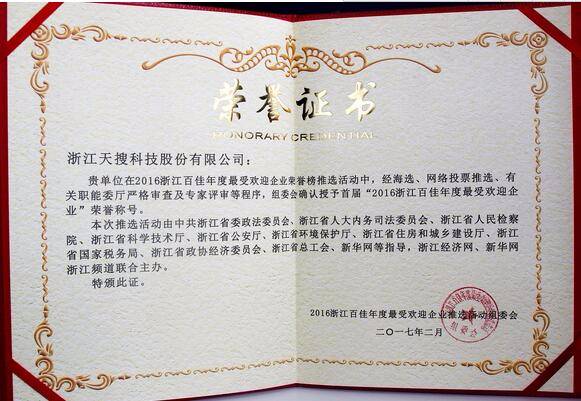 荣誉证书
HONORARY CREDENTIAL
浙江天搜科技股份有限公司：
贵单位在2016浙江百佳年度最受欢迎企业荣誉榜推选活动中，经海选、网络投票推选、有
关职能委厅严格审查及专家评审等程序，组委会确认授予首届“2016浙江百佳年度最受欢迎企
业”荣誉称号。
本次推选活动由中共浙江省委政法委员会、浙江省人大内务司法委员会、浙江省人民检察
院、浙江省科学技术厅、浙江省公安厅、浙江省环境保护厅、浙江省住房和城乡建设厅、浙江
省国家税务局、浙江省政协经济委员会、浙江省总工会、新华网等指导，浙江经济网、新华网
浙江频道联合主办。
特颁此证。
2016浙江百佳年度最受欢迎企业推选活动组委会
二〇一七年二月